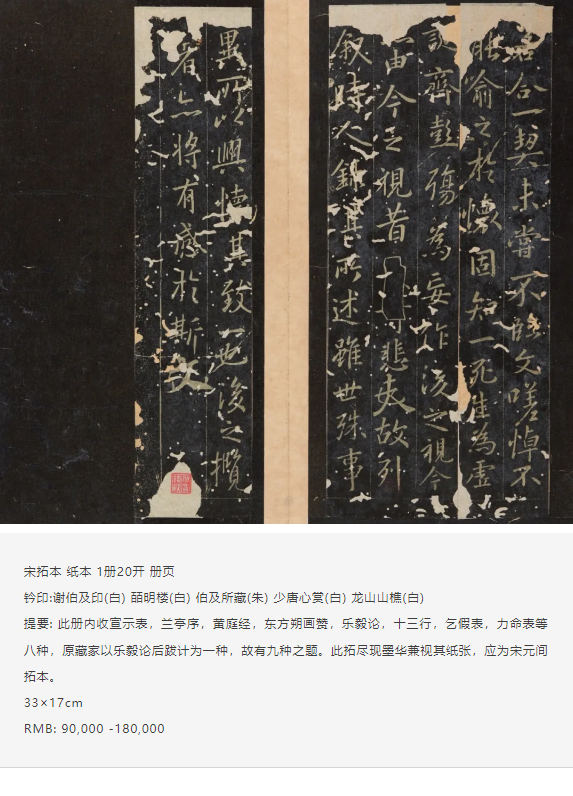 若合一契未嘗不臨文嗟悼不
能喻之於懷固知一死生為虛
誕齊彭殤為妄作後之視今
由今之視昔悲夫故列
叙時人錄其所述雖世殊事
異所以興懷其致一也後之攬
者亦將有感於斯文
宋拓本 纸本 1册20开 册页
钤印:谢伯及印(白) 皕明楼(白) 伯及所藏(朱) 少唐心赏(白) 龙山山樵(白)
提要: 此册内收宣示表，兰亭序，黄庭经，东方朔画赞，乐毅论，十三行，乞假表，力命表等
八种，原藏家以乐毅论后跋计为一种，故有九种之题。此拓尽现墨华兼视其纸张，应为宋元间
拓本。
33×17cm
RMB: 90,000 -180,000